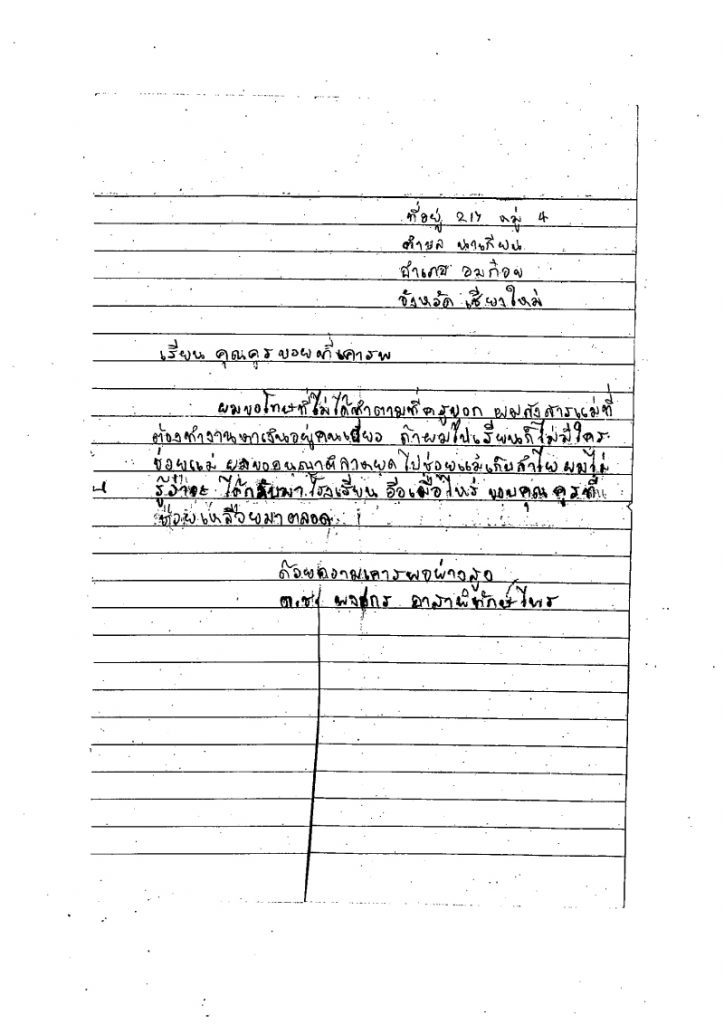 ที่อยู่ 217 หมู่ 4
ตำบล นาเกียน
อำเภอ อมก๋อย
จังหวัด เชียงใหม่
เรียน คุณครู ที่เคารพ
ผมขอโทษที่ไม่ได้ทำตามที่ครูบอก ผมสงสารแม่ที่
ต้องทำงานหาเงินอยู่คนเดียว ถ้าผมไปเรียนก็ไม่มีใคร
ช่วยแม่ ผมขออนุญาติลาหยุด ไปช่วยแม่เก็บลำไย ผมไม่
รู้ว่าจะ ได้กลับมาโรงเรียน อีกเมื่อไหร่ ขอบคุณ คูรที่
ช่วยเหลือผมมาตลอด
ด้วยความเคารพอย่างสูง
ด.ช. อาสาพิทักษ์ไพร